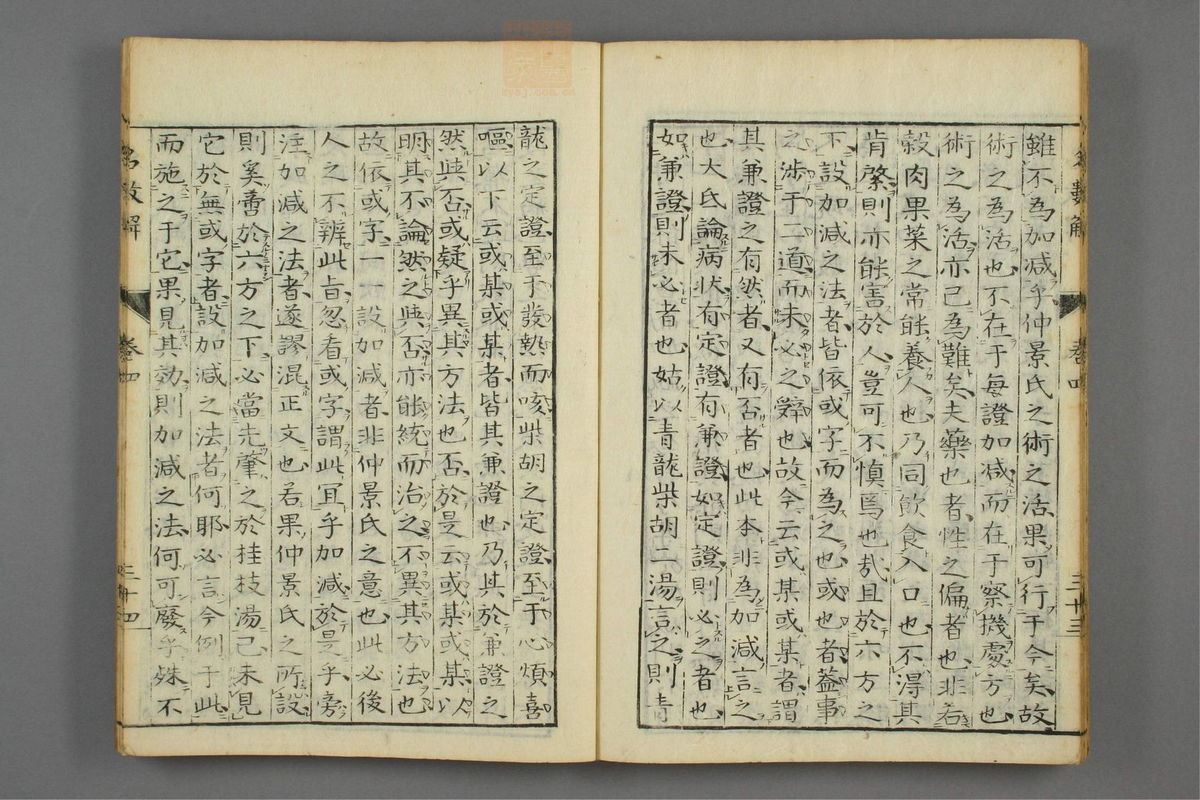 雖不為加減乎仲景氏之術之活果可行于今矣故
術之為活也不在于每證加減而在于察機處方也
術之為活亦已為難矣夫藥也者性之偏者也非若
穀肉果菜之常能養人也乃同飲食入口也不得其
肯綮則亦能害於人豈可不慎焉也哉且於六方之
不設加減之法者皆依或字而為之也或也者蓋事
之涉于二道而未必之辭也故今云或某或某者謂
其兼證之有然者又有否者也此本非為加減言之
也大氏論病狀有定證有兼證如定證則必之者也
如兼證則未必者也姑以青龍柴胡二湯言之則青
三十三
龍之定證至于發熱而咳柴胡之定證至于心煩喜
嘔以下云或某或某者皆其兼證也乃其於兼證之
然與否或疑乎異其方法也否於是云或某或某以
明其不論然之與否亦能統而治之不異其方法也
故依或字一一設加減者非仲景氏之意也此必後
人之不辨此旨忽看或字謂此冝乎加減於是乎旁
注加減之法者遂謬混正文也若果仲景氏之所設
則奚啻於六方之下必當先肇之於桂枝湯已未見
它於無或字者設加減之法者何耶必言今例于此
而施之于它果見其効則加減之法何可廢乎殊不
卷四
三十四